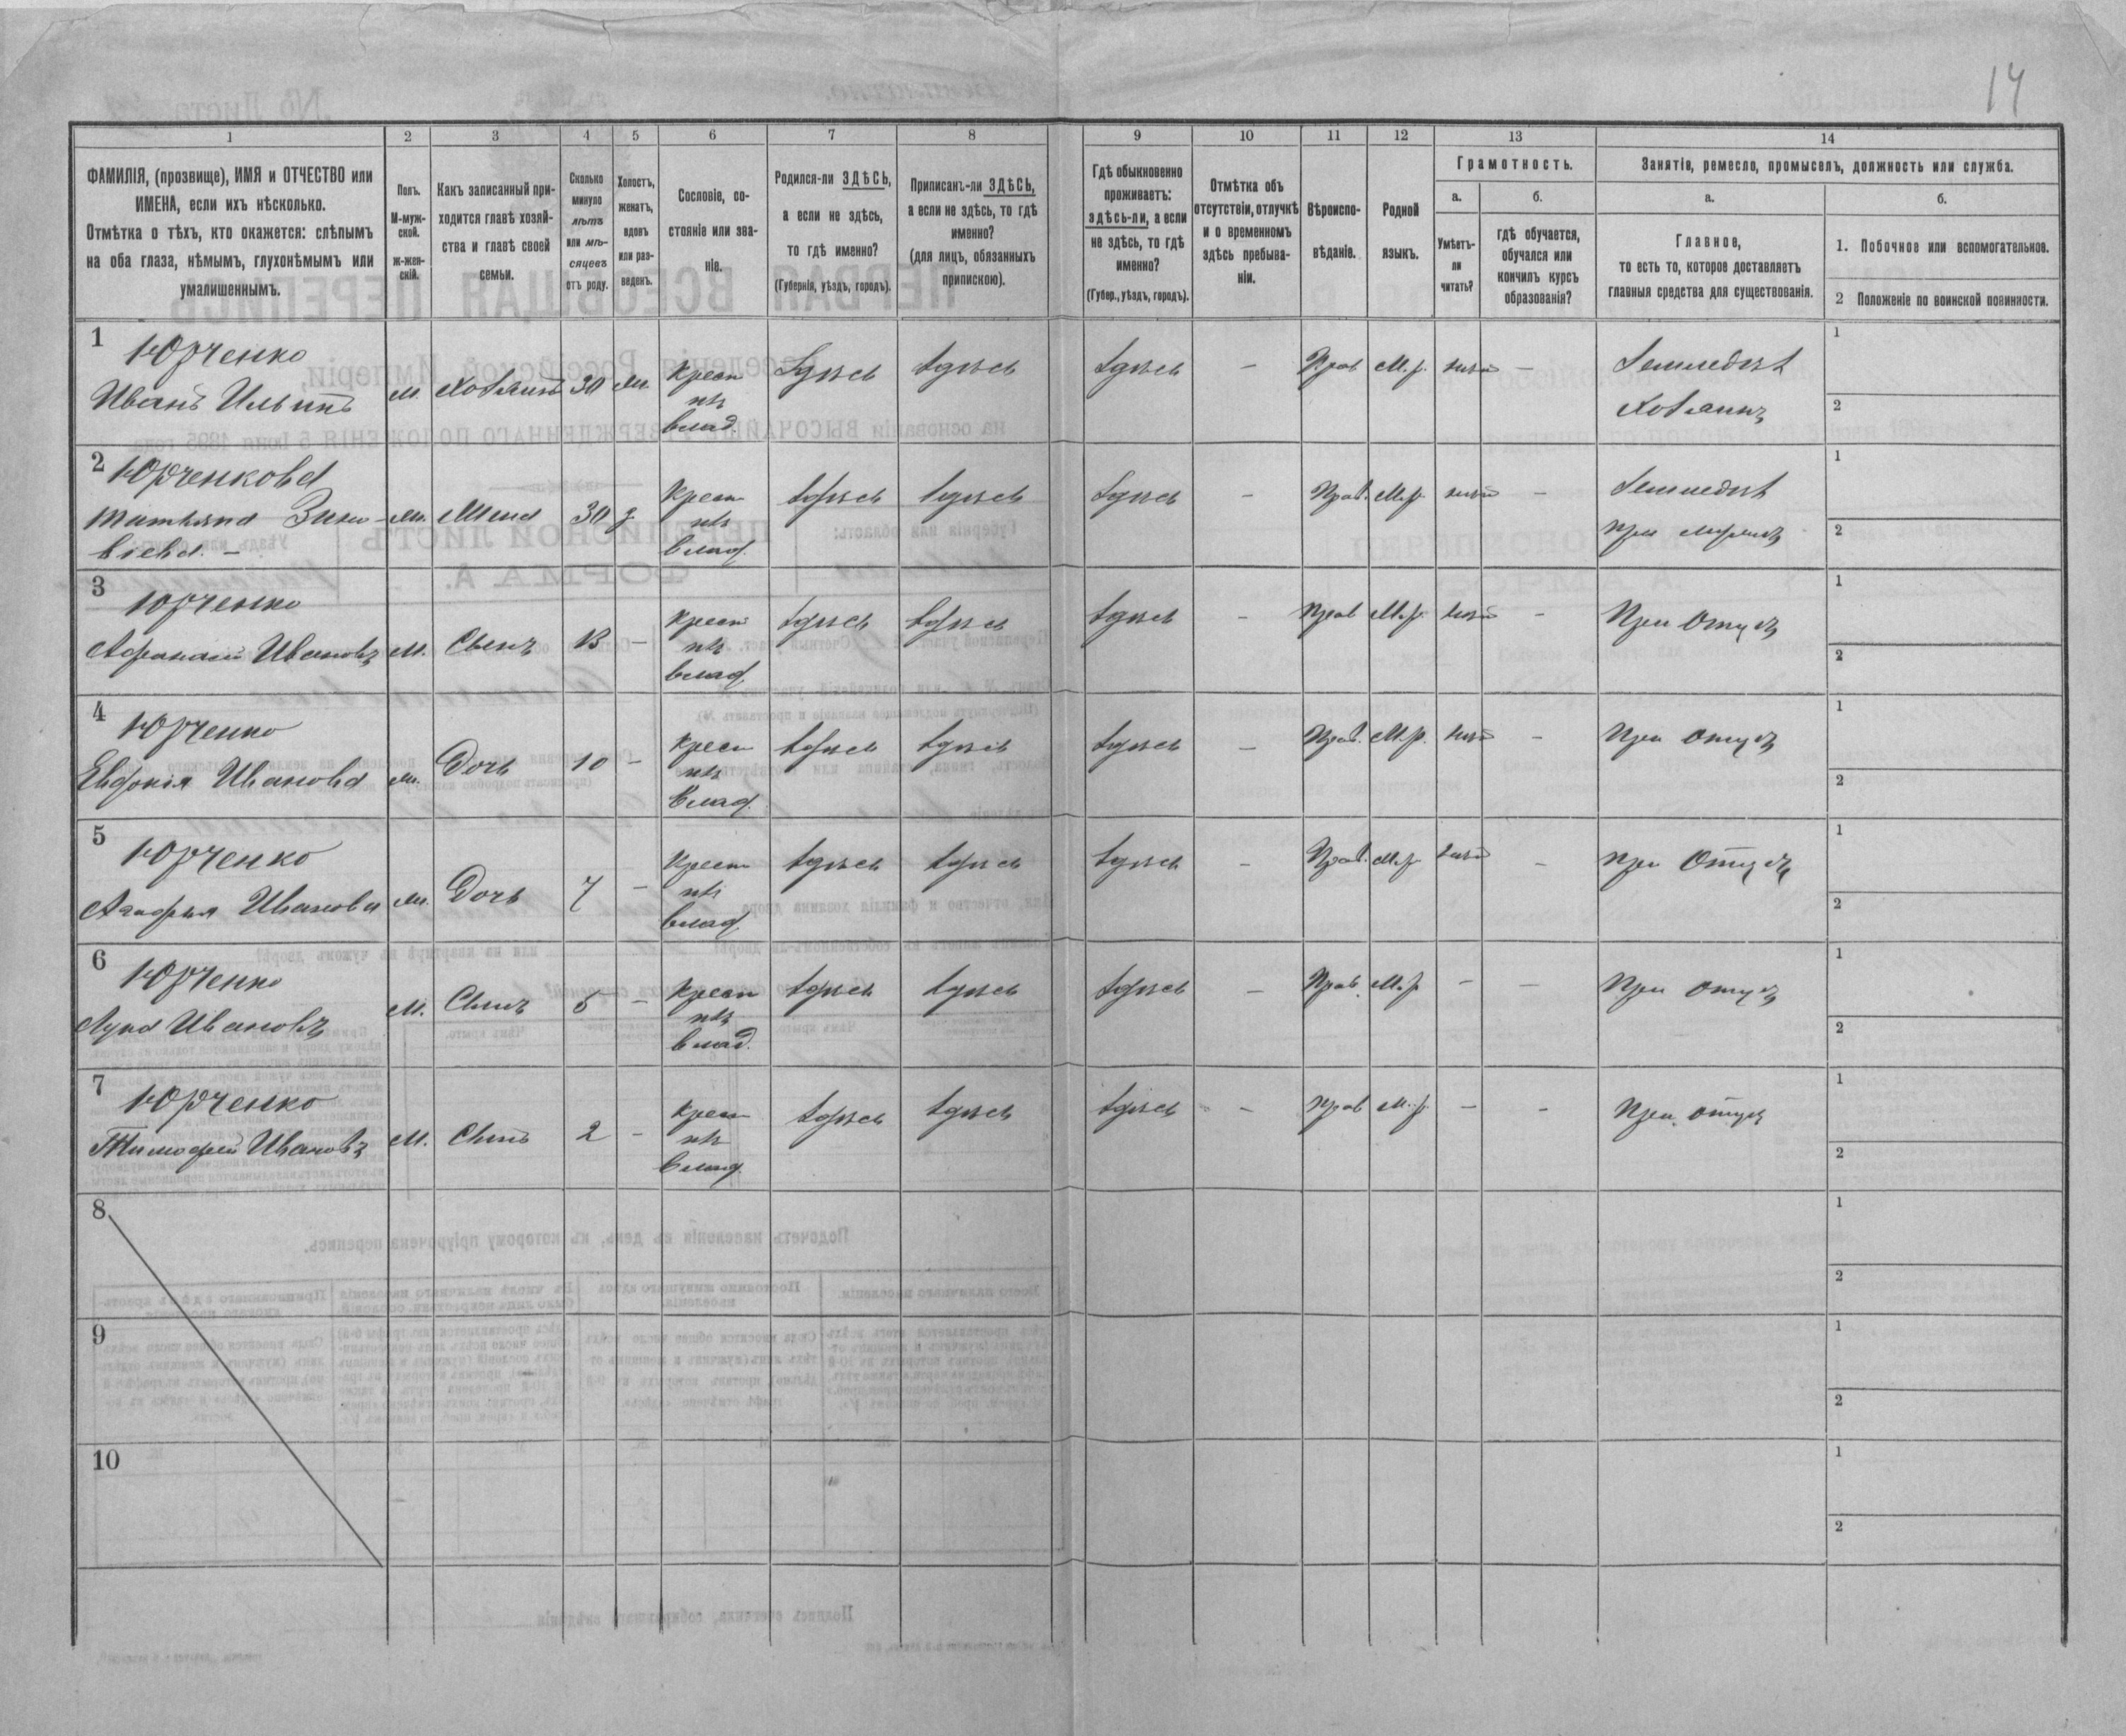 14
1 2 3 4 5 6 7 8 9 10 11 12 13 14
ФАМИЛІЯ, (прозвище), ИМЯ и ОТЧЕСТВО или
ИМЕНА, если ихъ нѣсколько.
Отмѣтка о тѣхъ, кто окажется: слѣпымъ
на оба глаза, нѣмымъ, глухонѣмымъ или
умалишеннымъ.
Полъ.
М-муж-
ской.
ж-жен-
скій.
Какъ записанный при-
ходится главѣ хозяй-
ства и главѣ своей
семьи.
Сколько
минуло
лѣтъ
или мѣ-
сяцевъ
отъ роду.
Холостъ,
женатъ,
вдовъ
или раз-
веденъ.
Сословіе, со-
стояніе или зва-
ніе.
Родился-ли ЗДѢСЬ,
а если не здѣсь,
то гдѣ именно?
(Губернія, уѣздъ, городъ).
Приписанъ-ли ЗДѢСЬ,
а если не здѣсь, то гдѣ
именно?
(для лицъ, обязанныхъ
припискою).
Гдѣ обыкновенно
проживаетъ:
здѣсь-ли, а если
не здѣсь, то гдѣ
именно?
(Губер., уѣздъ, городъ).
Отмѣтка объ
отсутствіи, отлучкѣ
и о временномъ
здѣсь пребыва-
ніи.
Вѣроиспо-
вѣданіе.
Родной
языкъ.
Грамотность.
а. б.
Умѣетъ-
ли
читать?
гдѣ обучается,
обучался или
кончилъ курсъ
образованія?
Занятія, ремесло, промыселъ, должность или служба.
а. б.
Главное,
то есть то, которое доставляетъ
главныя средства для существованія.
1. Побочное или вспомогательное.
2 Положеніе по воинской повинности.
1 Юрченко
Иванъ Ильинъ м. Хозяинъ 30 ж. Крест
изъ
влад. Здѣсь здѣсь здѣсь - Прав М.р. - Земледѣл
Хозяинъ 1
2
2 Юрченкова
Татьяна
м. Жена 30 з. Крест
изъ
влад. здѣсь здѣсь здѣсь - Прав. М.р. - Земледѣл
при мужѣ 1
2
3 Юрченко
Афанасій Ивановъ М. Сынъ 13 - Крест
изъ
влад. здѣсь здѣсь здѣсь - прав М.р. - При отцѣ 1
2
4 Юрченко
Евдокія Иванова ж. Дочь 10 - Крест
изъ
влад. здѣсь здѣсь здѣсь - Прав. М.р. - При отцѣ 1
2
5 Юрченко
Агафья Иванова ж. Дочь 7 - Крест
изъ
влад. здѣсь здѣсь здѣсь - Прав. М.р. - при Отцѣ 1
2
6 Юрченко
Лука Ивановъ М. Сынъ 5 - Крест
изъ
влад. здѣсь здѣсь здѣсь - Прав. М.р - - При отцѣ 1
2
7 Юрченко
Тимофей Ивановъ М. Сынъ 2 - Крест
изъ
влад. здѣсь здѣсь здѣсь - прав М.р. - - При отцѣ 1
2
8 1
2
9 1
2
10 1
2